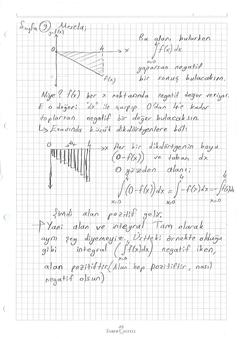 Sayfa 3 Mesela;
y=f(x)
Bu alanı bulurken
0 4 x
∫f(x)dx
f(x)
yaparsan negatif
bir sonuç bulacaksın.
Niye? f(x) her x noktasında negatif değer veriyor.
E o değeri "dx" ile çarpıp 0'dan 4'e kadar
toplarsan negatif bir değer bulacaksın.
↳ Esasında küçük dikdörtgenlere böl:
0 4 x
Her bir dikdörtgenin boyu
(0-f(x)) ve tabanı dx
O yüzden alanı:
∫(0-f(x))dx = ∫-f(x)dx = -∫f(x)dx
x=0 x=0 x=0
Şimdi alan pozitif gelir.
Yani alan ve integral Tam olarak
aynı şey diyemeyiz. Üstteki örnekte olduğu
gibi integral (∫f(x)dx) negatif iken,
alan pozitiftir (Alan hep pozitiftir, nasıl
negatif olsun)
FABER-CASTELL